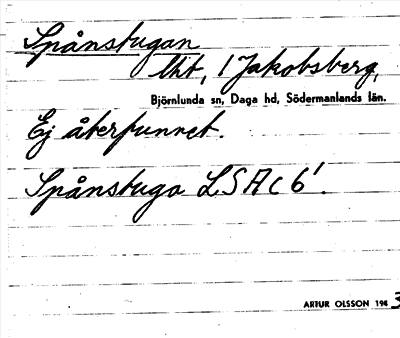 Spånstugan
lht, 1 Jakobsberg,
Björnlunda sn, Daga hd, Södermanlands län.
Ej återfunnet.
Spånstuga LSA c 6'.
ARTUR OLSSON 194 3